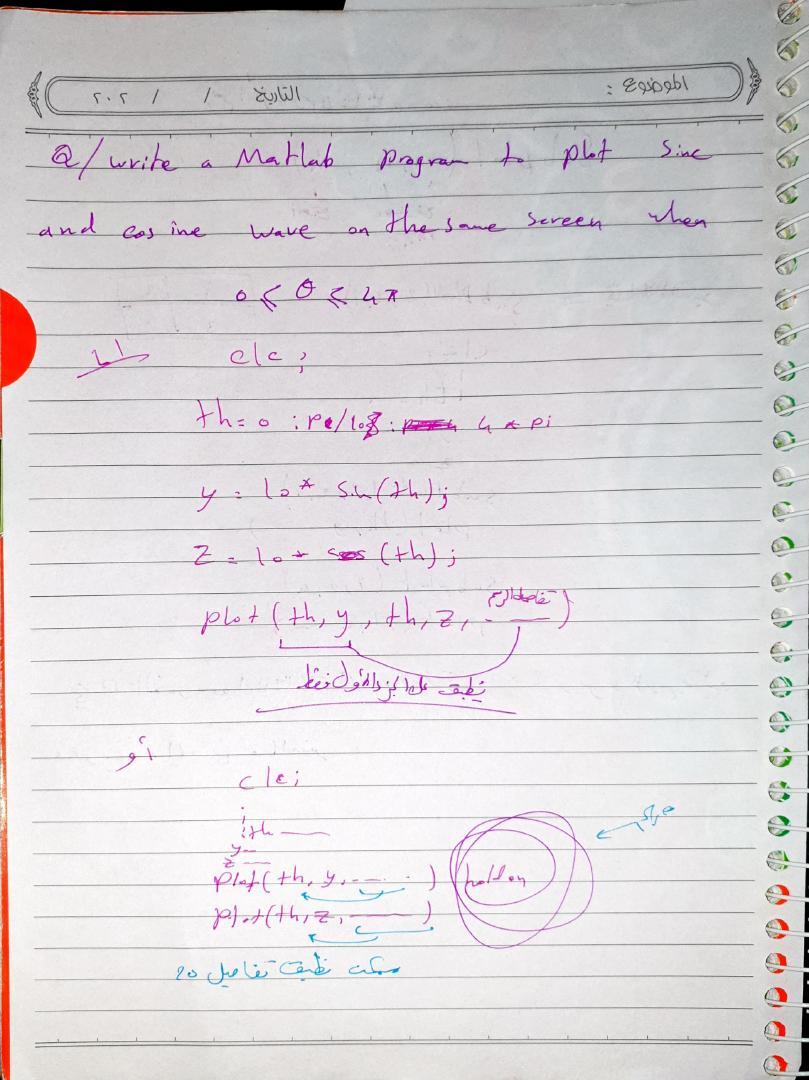 الموضوع :
التاريخ / / ٢٠٢
Q/ write a Matlab program to plot Sine
and cosine wave on the same screen when
0 ≤ θ ≤ 4π
clc ;
th= 0 : : 4 * pi
y = 10 * sin(th);
z = 10 * cos (th) ;
plot (th, y , th, z, تفاصيل الرسم)
تطبق على الجزء الأول فقط
أو
clc;
th
y
z
plot(th, y, ) hold on
plot(th, z, )
ممكن نطبق تفاصيل